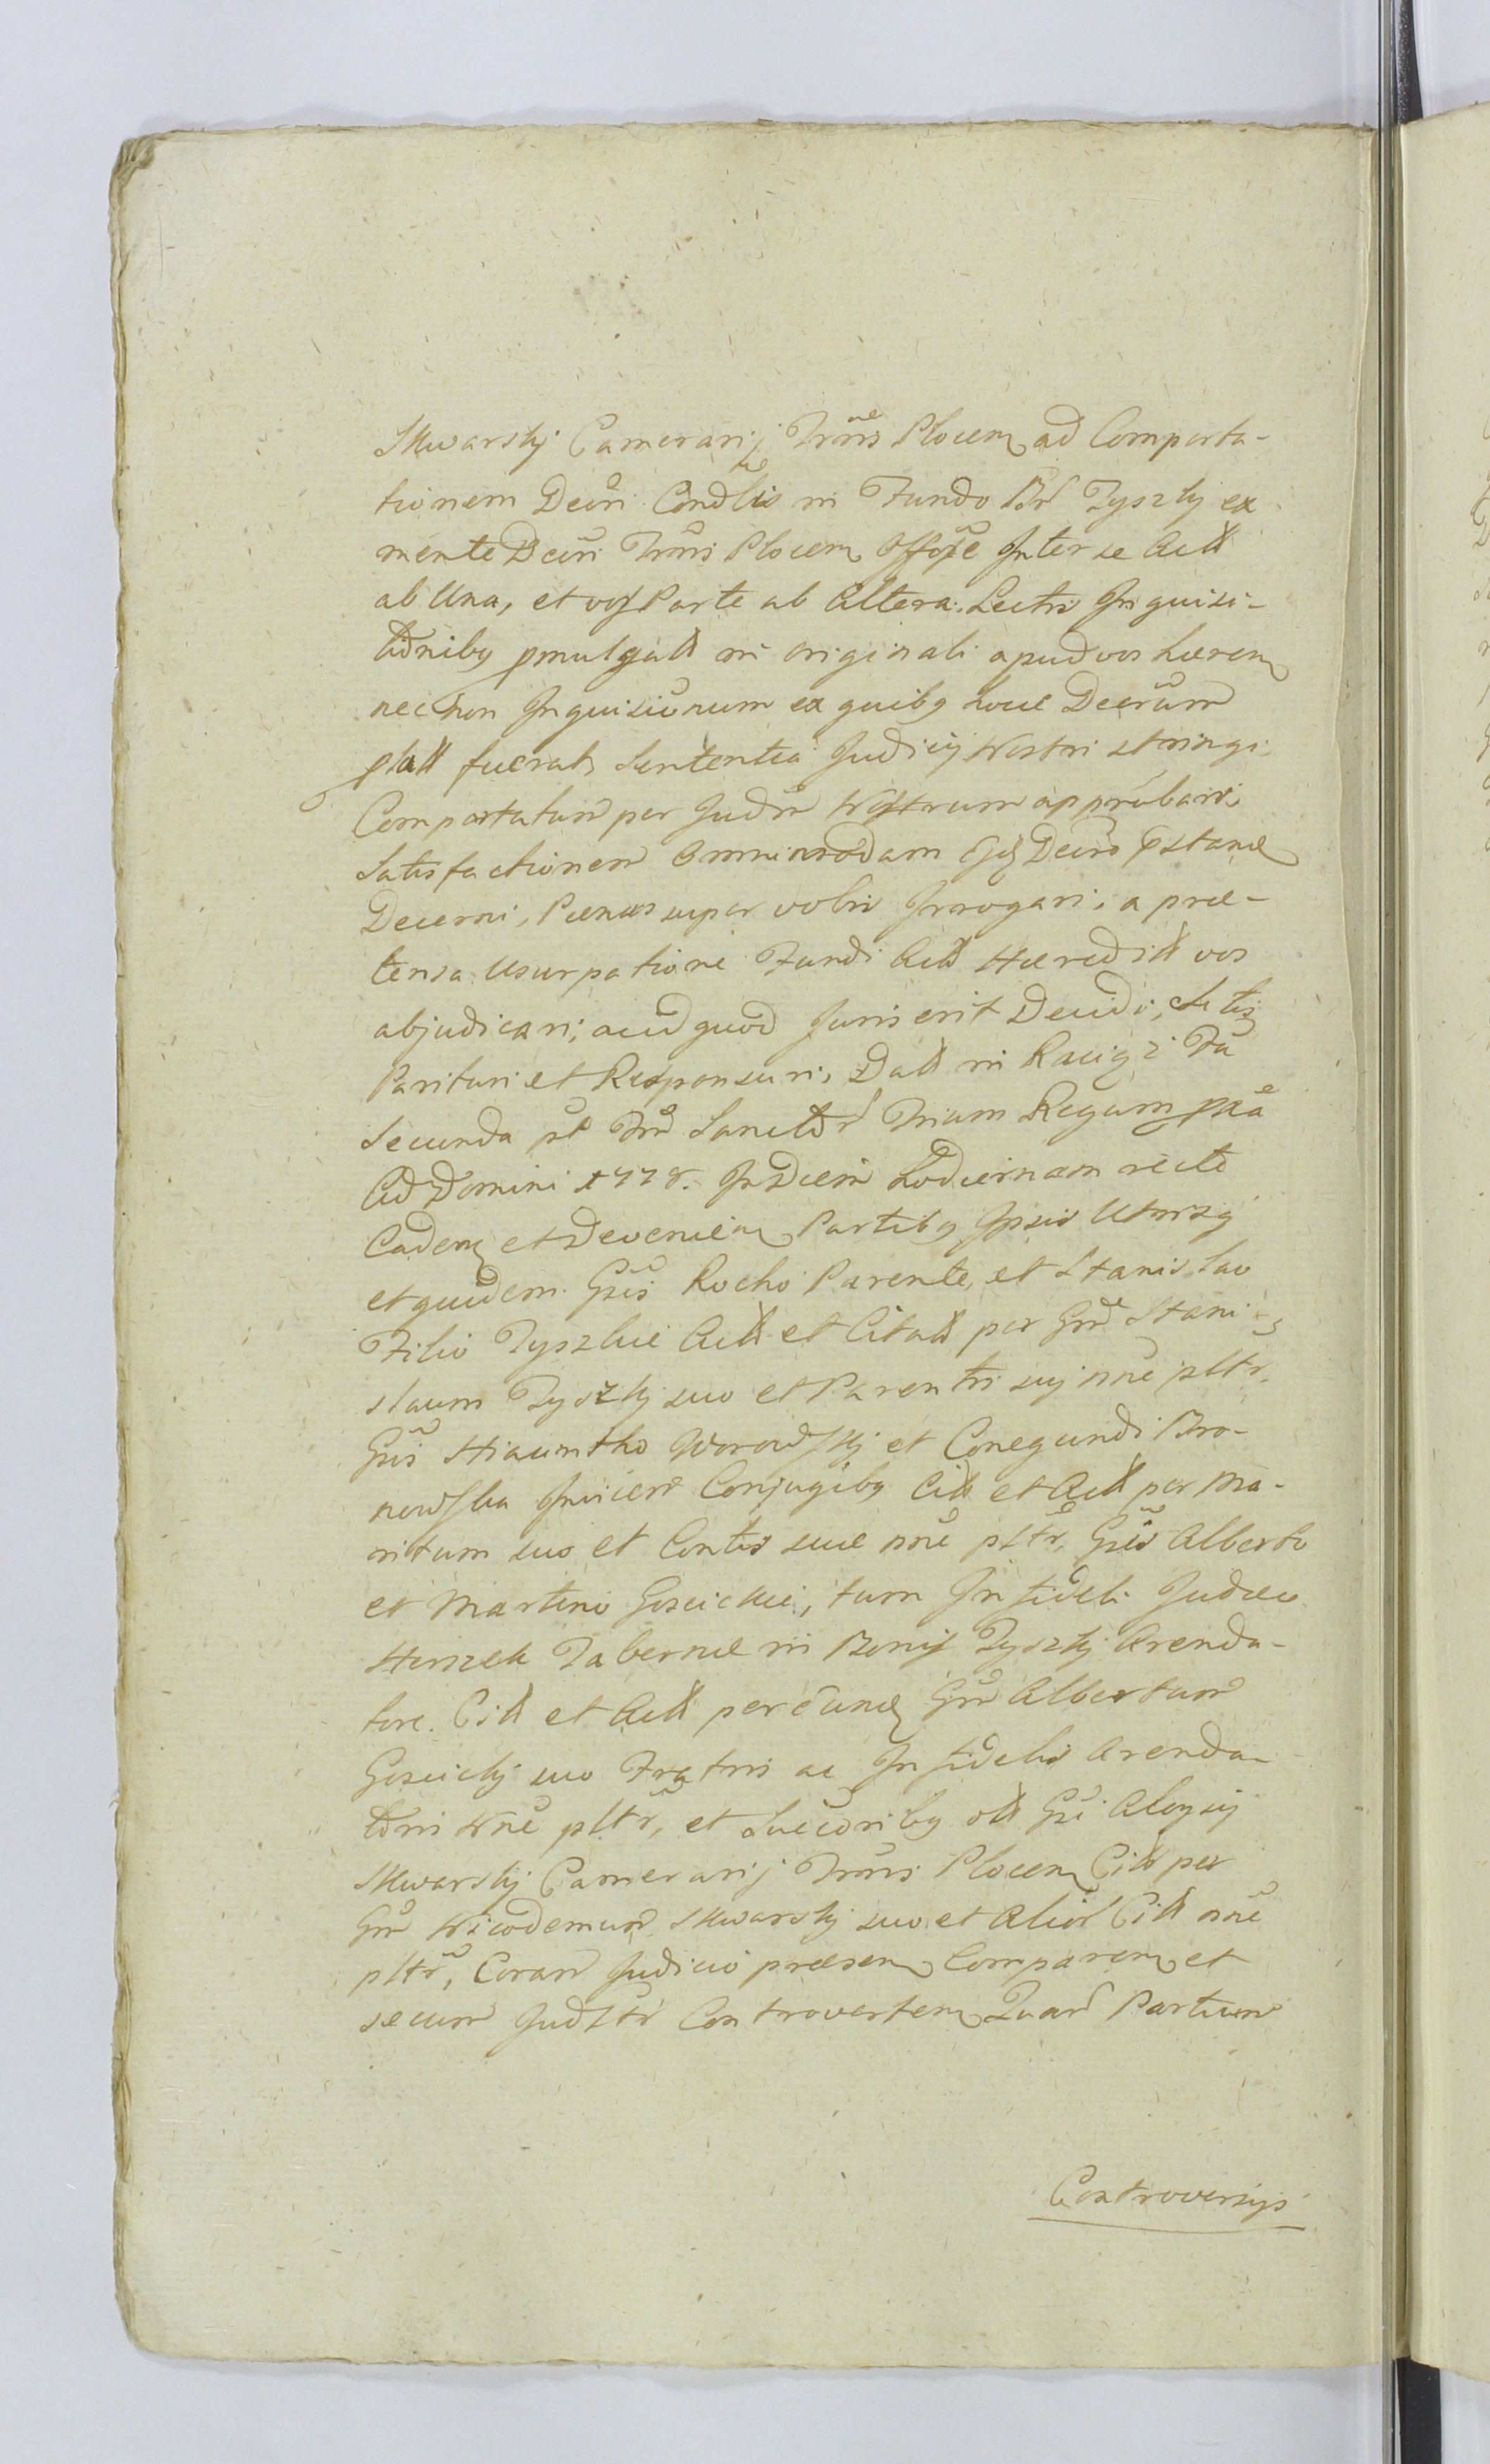 Skwarskj Camerarij Trrns Plocen ad Comporta-
tionem Decri Condlis in Fundo Br Tyszkj ex
mente Decri Trrns Plocen Offose Inter se Actt
ab Una, et vos Parte ab Altera. Lectis Inquisi-
tionibq pmulgatt in originali apud vos haeren
nec non Inquisionum ex quibq hocce Decrum
platt fuerat, Sententia Judicij Nostri stringi,
Comportatum per Judm Nostrum approbari,
Satisfactionem Omnimodam Ejq Decro pstand
Decerni, Paenas super vobis Irrogari, a prae-
tensa Usurpatione Fundi Actt Haereditt vos
abjudicari, aliud quod Juris erit Decidi, Sitis
Parituri et Responsuri, Datt in Raciąż Fa
Secunda pt Fm Sanctor Trium Regum pxa
Ao Domini 1778. In Diem hodiernam recte
Caden et Devenien Partibq Ipsis Utrisq
et quidem. Gsis Rocho Parente, et Stanislao
Filio Tyszkie Actt et Citatt per Gm Stani-
slaum Tyszkj suo et Parentis suj nne pltr,
Gsis Hiacintho Worowskj et Conegundi Bro-
nowska Invicem Conjugibq Citt et Actt per Ma-
ritum suo et Contis suae nne pltr, Gsis Alberto
et Martino Goscickie, tum Infideli Judaeo
Herszek Tabernae in Bonis Tyszkj Arenda-
tore. Citt et Actt per eund Gm Albertum
Goscickj suo Fratris ac Infidelis Arenda-
toris Nne pltr, et Succoribq ott Gsi Aloysij
Skwarskj Camerarij Trrns Plocen Citt per
Gm Nicodemum Skwarskj suo et Alior Citt nne
pltr, Coram Judicio praesen Comparen et
secum Judltr Controverten Quar Partium
Controversijs